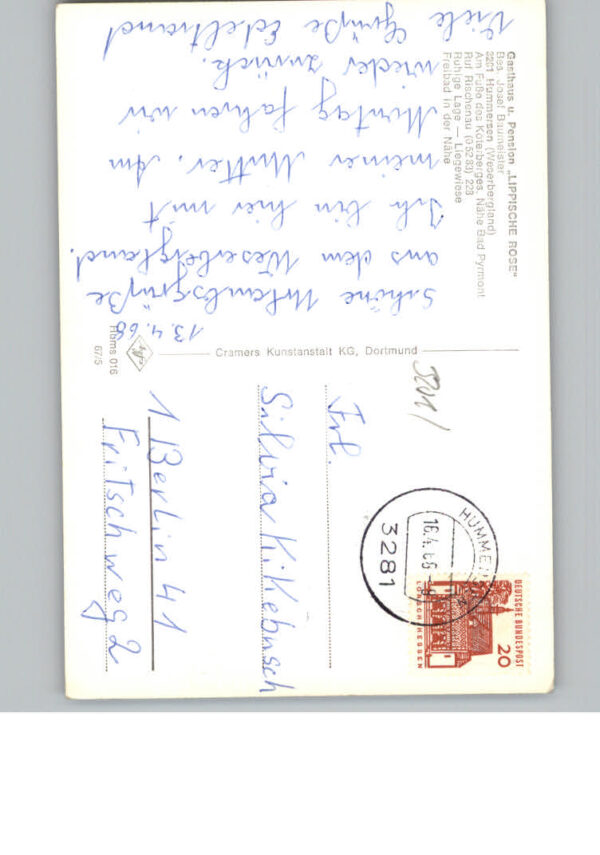 Gasthaus u. Pension „LIPPISCHE ROSE“
Bes. Josef Baumeister
3281 Hummersen (Weserbergland)
Am Fuße des Köterberges, Nähe Bad Pyrmont
Ruf Rischenau (05283) 228
Ruhige Lage — Liegewiese
Freibad in der Nähe
13.4.68
Schöne Urlaubsgrüße
aus dem Weserbergland.
Ich bin hier mit
meiner Mutter. Am
Montag fahren wir
wieder zurück.
Viele Grüße Edeltraud
Cramers Kunstanstalt KG, Dortmund
Hbms 016
67/5
DEUTSCHE BUNDESPOST
20
LORSCH HESSEN
3281
Frl.
Silvia Kikebusch
1 Berlin 41
Fritschweg 2